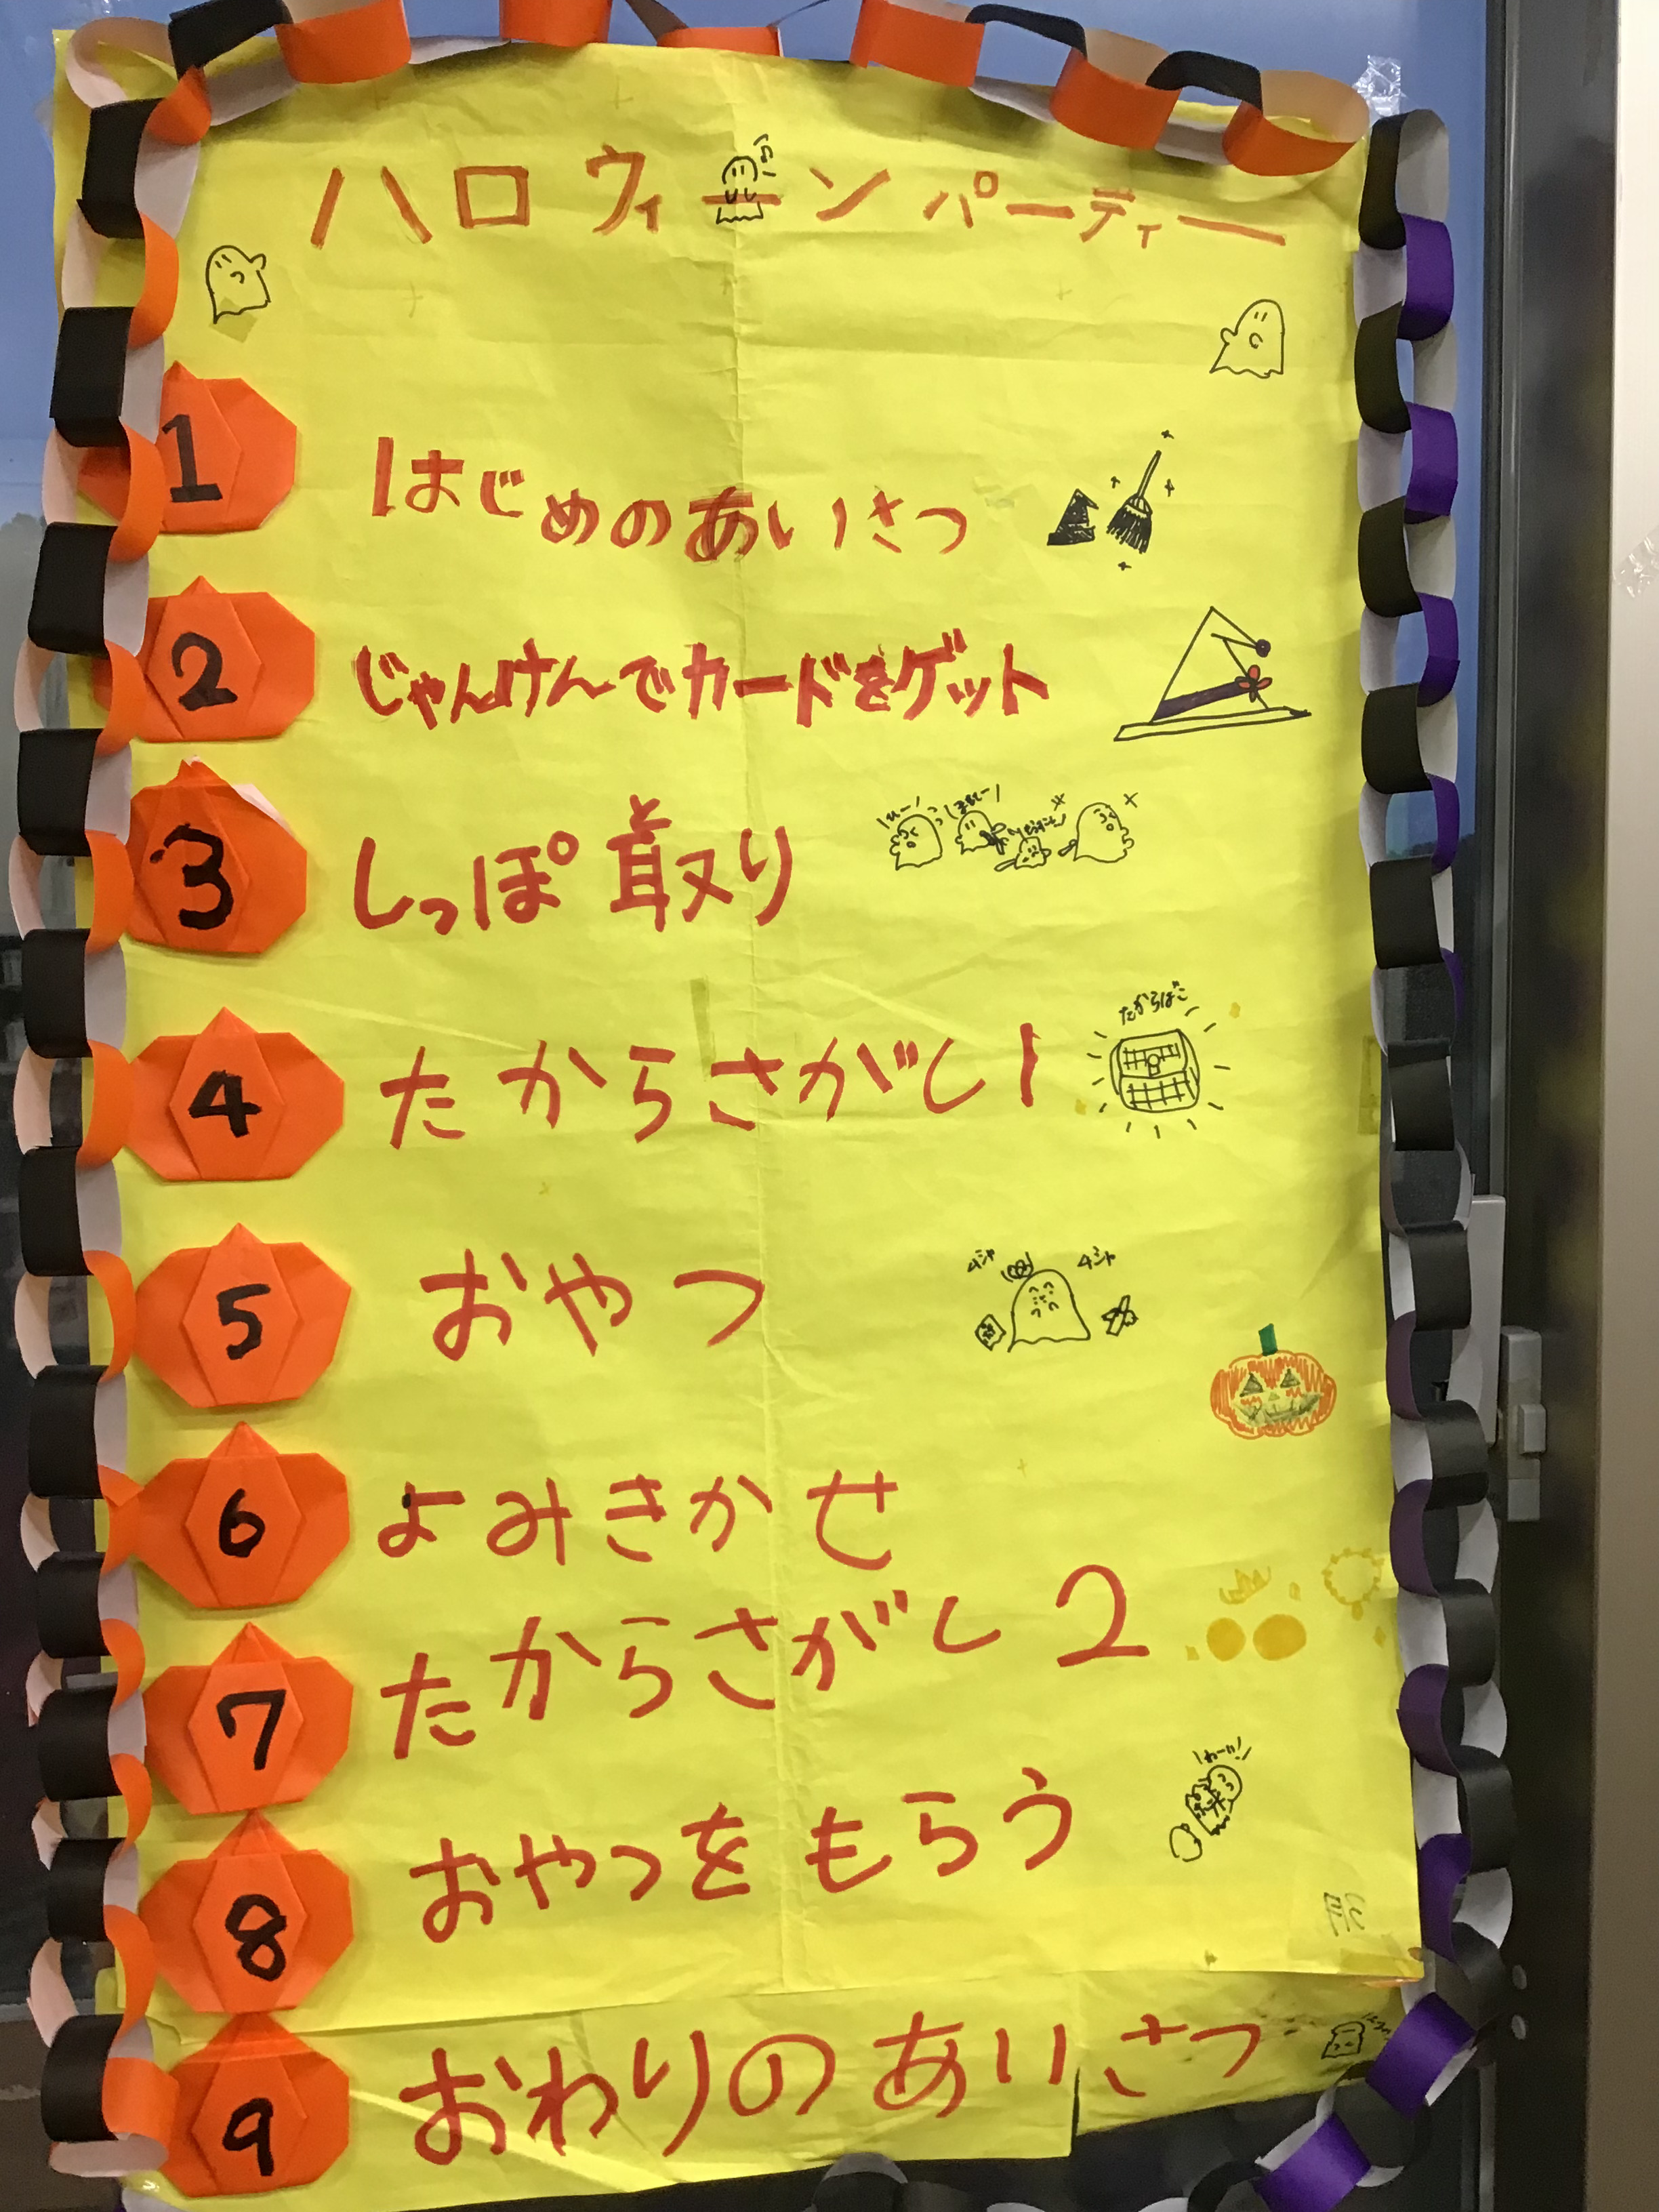 ハロウィーンパーティー
1 はじめのあいさつ
2 じゃんけんでカードをゲット
3 しっぽ取り
4 たからさがし1
たからばこ
5 おやつ
6 よみきかせ
7 たからさがし2
8 おやつをもらう
わーい!
9 おわりのあいさつ